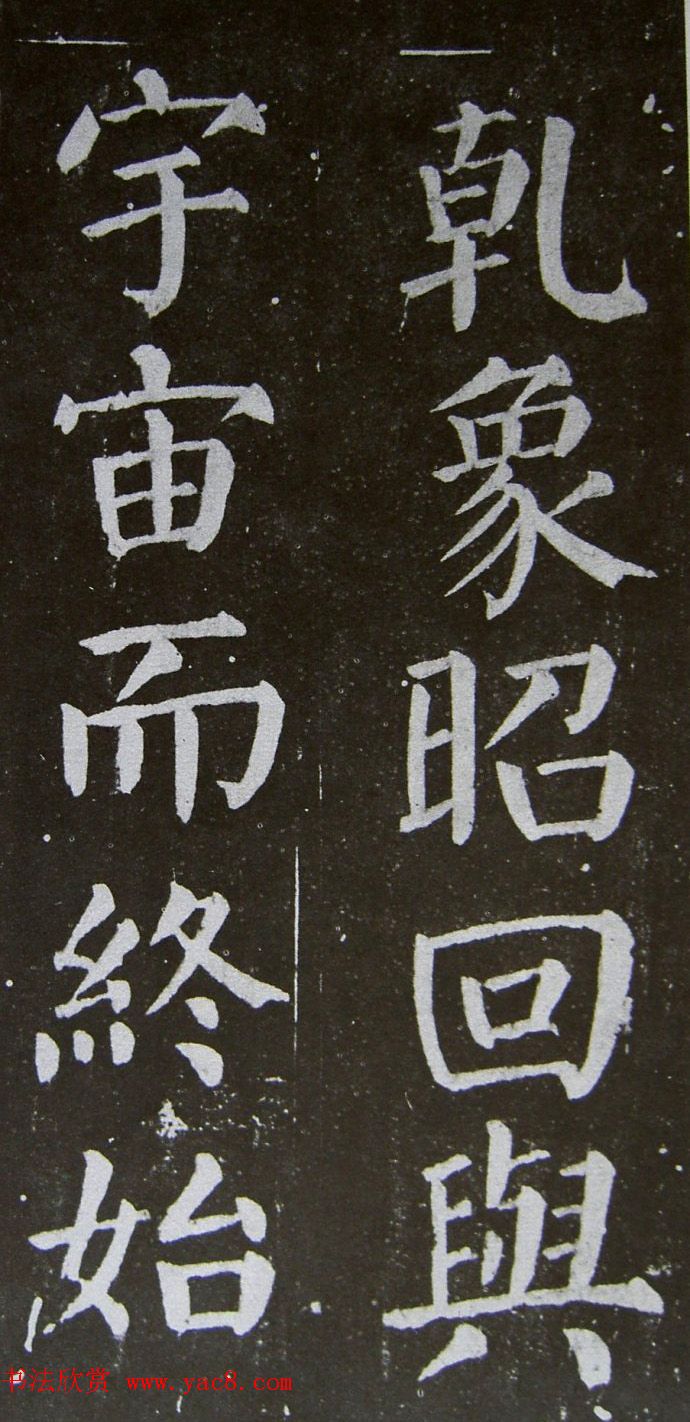 乹象昭回與
宇宙而終始
书法欣赏 www.yac8.com